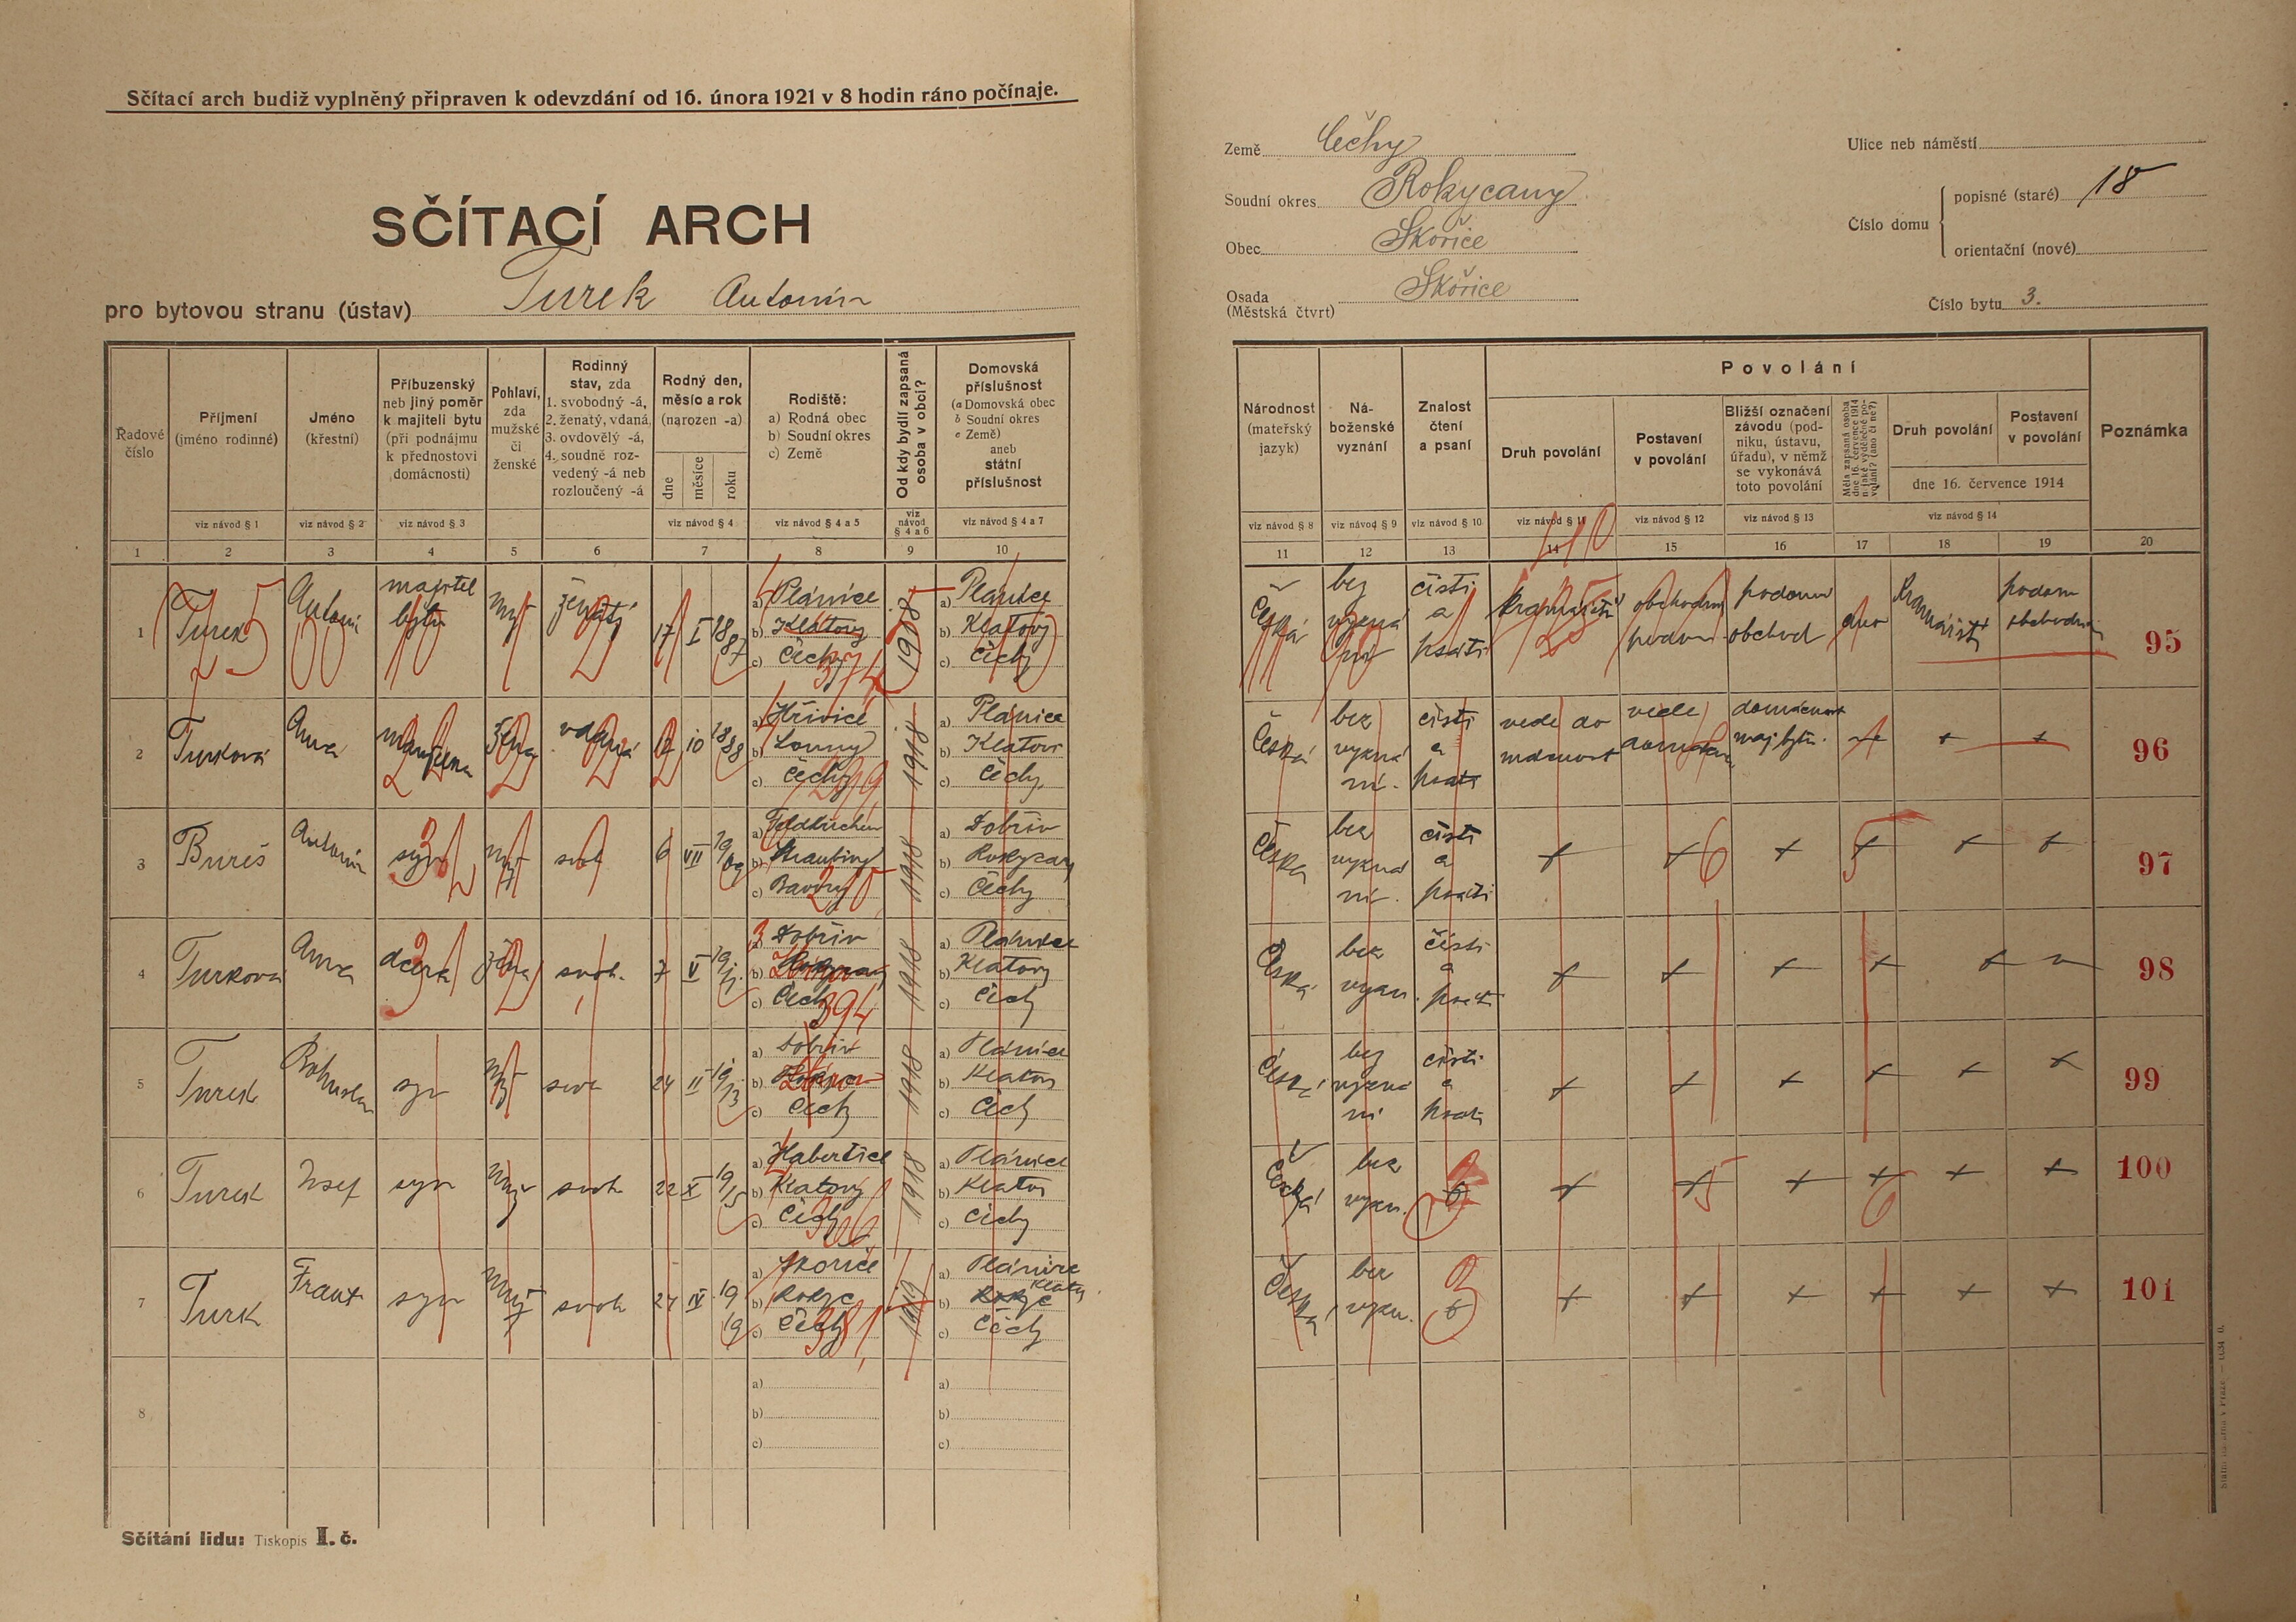 Sčítací arch budiž vyplněný připraven k odevzdání od 16. února 1921 v 8 hodin ráno počínaje.
SČÍTACÍ ARCH
pro bytovou stranu (ústav) Turek Antonín
Země Čechy
Soudní okres Rokycany
Obec Skořice
Osada Skořice
(Městská čtvrt)
Ulice neb náměstí
Číslo domu
popisné (staré) 18
orientační (nové)
Číslo bytu 3.
Řadové číslo
Příjmení
(jméno rodinné)
viz návod § 1
Jméno
(křestní)
viz návod § 2
Příbuzenský
neb jiný poměr
k majiteli bytu
(při podnájmu
k přednostovi
domácnosti)
viz návod § 3
Pohlaví,
zda
mužské
či
ženské
Rodinný
stav, zda
1. svobodný -á,
2. ženatý, vdaná,
3. ovdovělý -á,
4. soudně roz-
vedený -á neb
rozloučený -á
Rodný den,
měsíc a rok
(narozen -a)
dne
měsíce
roku
viz návod § 4
Rodiště:
a) Rodná obec
b) Soudní okres
c) Země
viz návod § 4 a 5
Od kdy bydlí zapsaná
osoba v obci?
viz
návod
§ 4 a 6
Domovská
příslušnost
(a Domovská obec
b Soudní okres
c Země)
aneb
státní
příslušnost
viz návod § 4 a 7
1 2 3 4 5 6 7 8 9 10
Národnost
(mateřský
jazyk)
viz návod § 8
Ná-
boženské
vyznání
viz návod § 9
Znalost
čtení
a psaní
viz návod § 10
Povolání
Druh povolání
viz návod § 11
Postavení
v povolání
viz návod § 12
Bližší označení
závodu (pod-
niku, ústavu,
úřadu), v němž
se vykonává
toto povolání
viz návod § 13
Měla zapsaná osoba
dne 16. července 1914
Druh povolání
Postavení
v povolání
dne 16. července 1914
viz návod § 14
Poznámka
11 12 13 14 15 16 17 18 19 20
1 Turek Antonín majitel bytu muž ženatý 17 I 1887
a) Plánice
b) Klatovy
c) Čechy
374
1908
a) Plánice
b) Klatovy
c) Čechy
Česká bez vyznání čísti a psáti
podom obchod
ano
podom obchodník
95
2 Turková Anna manželka žena vdaná 10 1888
a) Hřivice
b) Louny
c) Čechy
1918
a) Plánice
b) Klatovy
c) Čechy
Česká bez vyznání čísti a psáti vede domácnost vede domácnost maj. bytu ne + +
96
3 Bureš Antonín syn muž svob 6 VII 1909
a) Feldkirchen
b) Straubing
c) Bavory
1918
a) Dobřív
b) Rokycany
c) Čechy
Česká bez vyznání čísti a psáti + + + + + +
97
4 Turková Anna dcera žena svob. 7 V
a) Dobřív
c) Čechy
394
1918
a) Plánice
b) Klatovy
c) Čechy
Česká bez vyzn. čísti a psáti + + + + +
98
5 Turek Bohuslav syn muž svob 24 II 1913
a) Dobřív
c) Čechy
1918
a) Plánice
b) Klatov
c) Čechy
Česká bez vyznání čísti a psáti + + + + + +
99
6 Turek Josef syn muž svob 22 X 1915
b) Klatovy
c) Čechy
1918
a) Plánice
b) Klatov
c) Čechy
Česká bez vyzn. + + + + + + +
100
7 Turk Frant syn muž svob 24 IV 1919
a) Skořice
b) Rokyc
c) Čechy
381
1919
a) Plánice
b) Klatov
c) Čechy
Česká bez vyzn. + + + + + + +
101
8
a)
b)
c)
a)
b)
c)
Sčítání lidu: Tiskopis I. č.